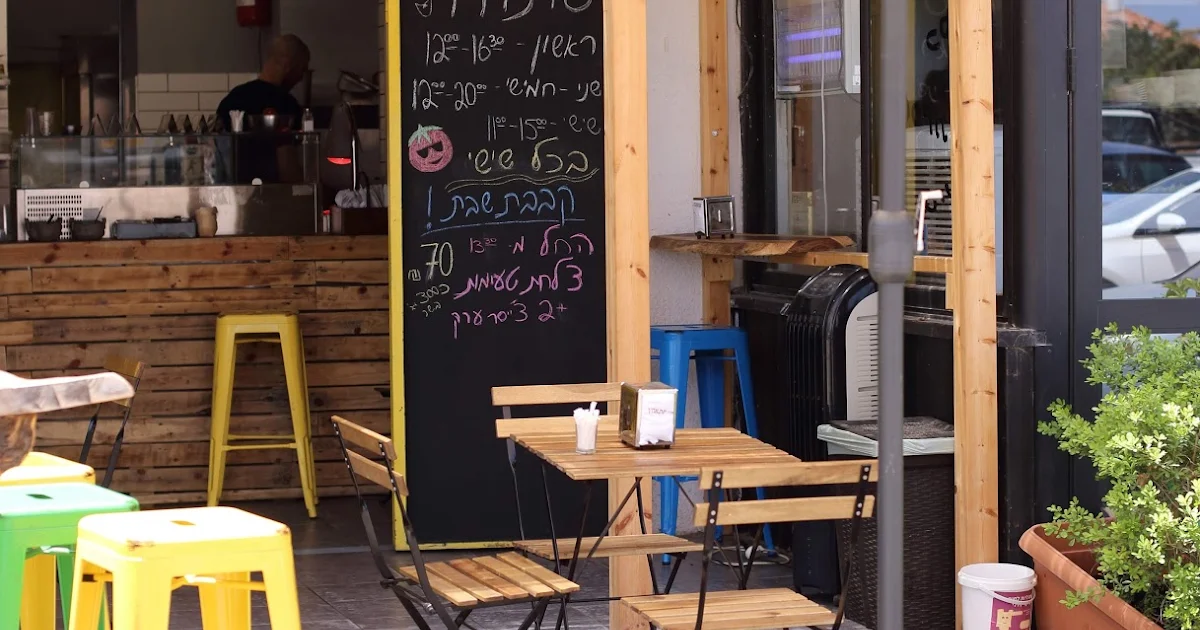 ראשון - 12⁰⁰-16³⁰
שני - חמישי - 12⁰⁰-20⁰⁰
שישי - 11⁰⁰-15⁰⁰
בכל שישי
קבבת שבת!
החל מ. 13³⁰
צלחת טעימות
+2 צ'יסר ערק
70 ₪